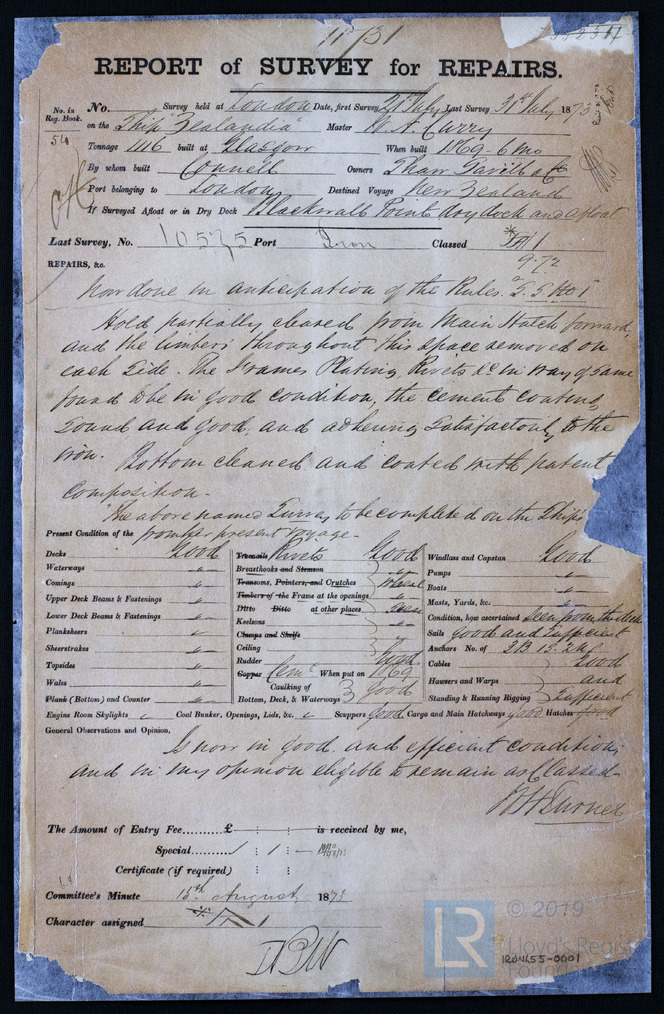 11731
REPORT of SURVEY for REPAIRS.
No. in Reg. Book. No. Survey held at London Date, first Survey 21st July Last Survey 31st July 1873
54 on the Ship "Zealandia" Master
Tonnage 1116 built at Glasgow When built 1869. 6 mo
By whom built Connell Owners Shaw Savill & Co
Port belonging to London Destined Voyage New Zealand
If Surveyed Afloat or in Dry Dock Blackwall Point dry dock and afloat
Last Survey, No. 10575 Port Iron Classed A 1
9.72
REPAIRS, &c.
now done in anticipation of the Rules. S. S. No 1
Hold partially cleared from Main Hatch forward,
and the limbers throughout this space removed on
each side. The Frames Plating, Rivets &c in way of same
found to be in good condition, the cement coating,
sound and good, and adhering satisfactorily to the
iron. Bottom cleaned and coated with patent
composition.
The above named Survey to be completed on the Ship's
from her present voyage.
Present Condition of the
Decks Good
Waterways "
Comings "
Upper Deck Beams & Fastenings "
Lower Deck Beams & Fastenings "
Planksheers "
Sheerstrakes "
Topsides "
Wales "
Plank (Bottom) and Counter "
Treenails Rivets Good
Breasthooks and Stemson "
Transoms, Pointers, and Crutches
Timbers of the Frame at the openings
Ditto Ditto at other places
Keelsons "
Clamps and Shelfs
Ceiling
Rudder Good
Copper Cemt When put on 1869
Caulking of
Bottom, Deck, & Waterways Good
Windlass and Capstan Good
Pumps "
Boats "
Masts, Yards, &c. "
Condition, how ascertained Seen from the deck
Sails good and sufficient
Anchors No. of 3B. 1S. 2K
Cables Good
Hawsers and Warps and
Standing & Running Rigging Sufficient
Engine Room Skylights Coal Bunker, Openings, Lids, &c. Scuppers good Cargo and Main Hatchways good Hatches good
General Observations and Opinion,
Is now in good and efficient condition,
and in my opinion eligible to remain as Classed.
Turner
The Amount of Entry Fee..........£ : : is received by me,
Special......... 1 : 1 : —
Certificate (if required) : :
Committee's Minute 15th August 1873
Character assigned A 1
LR © 2019
Lloyd's Register
Foundation
IRON455-0001